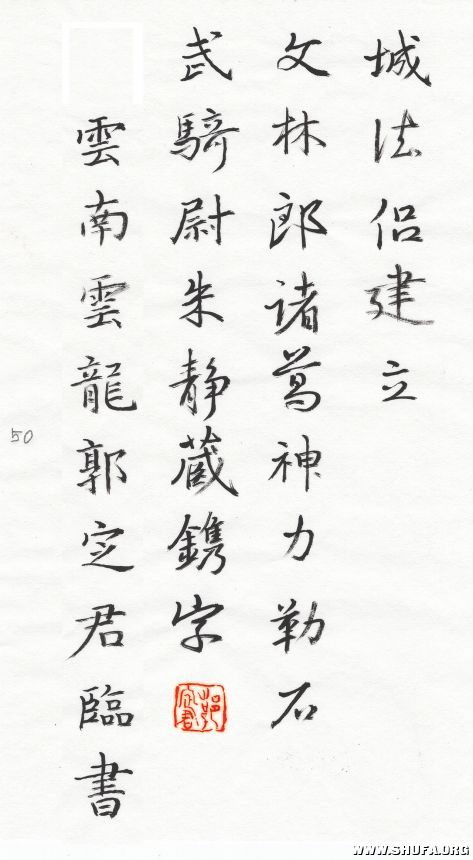 城法侣建立
文林郎诸葛神力勒石
武騎尉朱静藏鐫字
雲南雲龍郭定君臨書
50
WWW.SHUFA.ORG